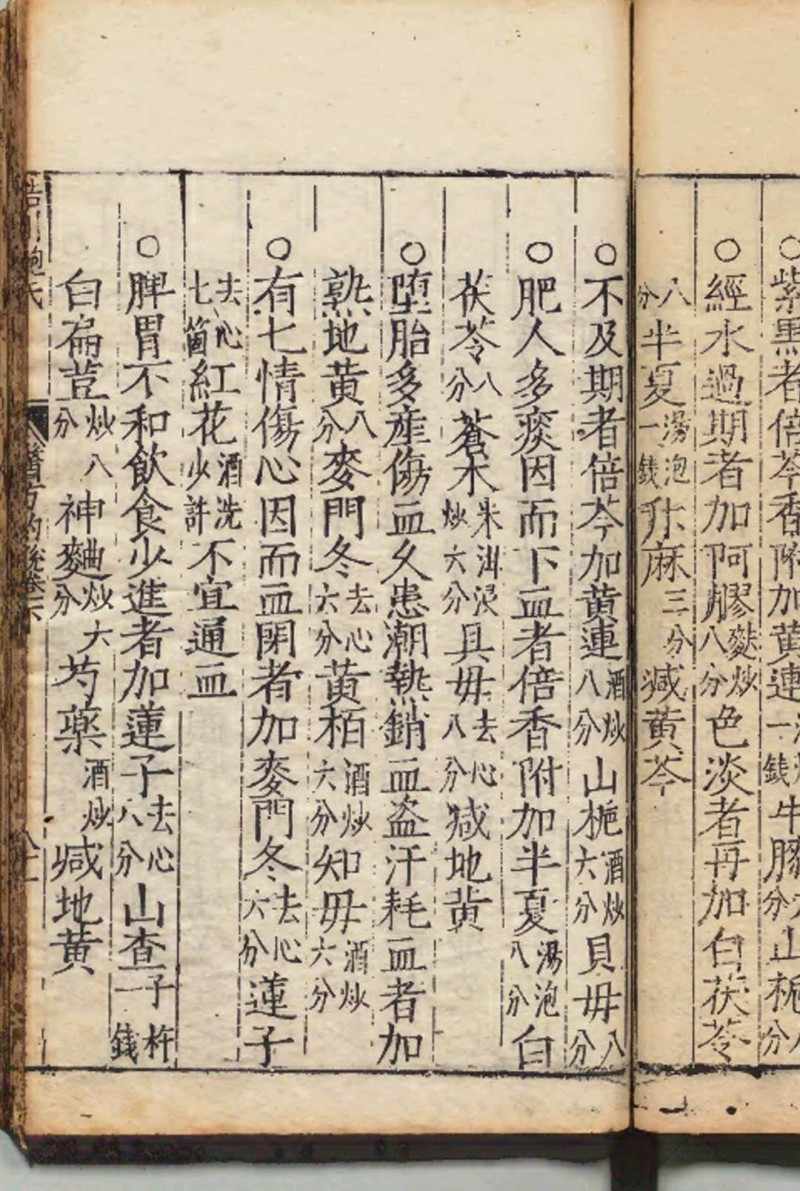 紫黑者倍芩香附加黃連一錢牛膝分山梔分
○經水過期者加阿膠麩炒八分色淡者再加白茯苓
八分半夏湯泡一錢升麻三分減黃芩
○不及期者倍芩加黃連酒炒八分山梔酒炒六分貝母八分
○肥人多痰因而下血者倍香附加半夏湯泡八分白
茯苓八分蒼朮米泔浸炒六分具母去心八分減地黃
○墮胎多產傷血久患潮熱銷血盗汗耗血者加
熟地黃八分麥門冬去心六分黃栢酒炒六分知母酒炒六分
○有七情傷心因而血閉者加麥門冬去心六分蓮子
去心七箇紅花酒洗少許不宜通血
○脾胃不和飲食少進者加蓮子去心八分山查子杵一錢
白扁荳炒八分神麯炒六分芍藥酒炒減地黃